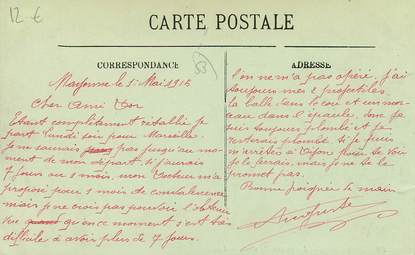 12 €
CARTE POSTALE
CORRESPONDANCE
Mayenne le 1er Mai 1916
Cher Ami
Etant complètement rétabli je
part lundi soir pour Marseille.
Je ne saurais pas jusqu'au mo-
ment de mon départ si j'aurais
7 jours ou 1 mois, mon Docteur m'a
proposé pour 1 mois de convalescence
mais je ne crois pas pouvoir l'obtenir
vu qu'en ce moment s'est très
difficile à avoir plus de 7 jours.
(53)
ADRESSE
l'on ne m'a pas opéré, j'ai
toujours mes 2 projectiles
la balle dans le cou et un mor-
ceau dans l'épaule, donc je
suis toujours plombé et je
resterais plombé. si je puis
m'arrêter à Dijon pour te voir
je le ferais, mais je ne te le
promet pas.
Bonne poignée de main
Auguste